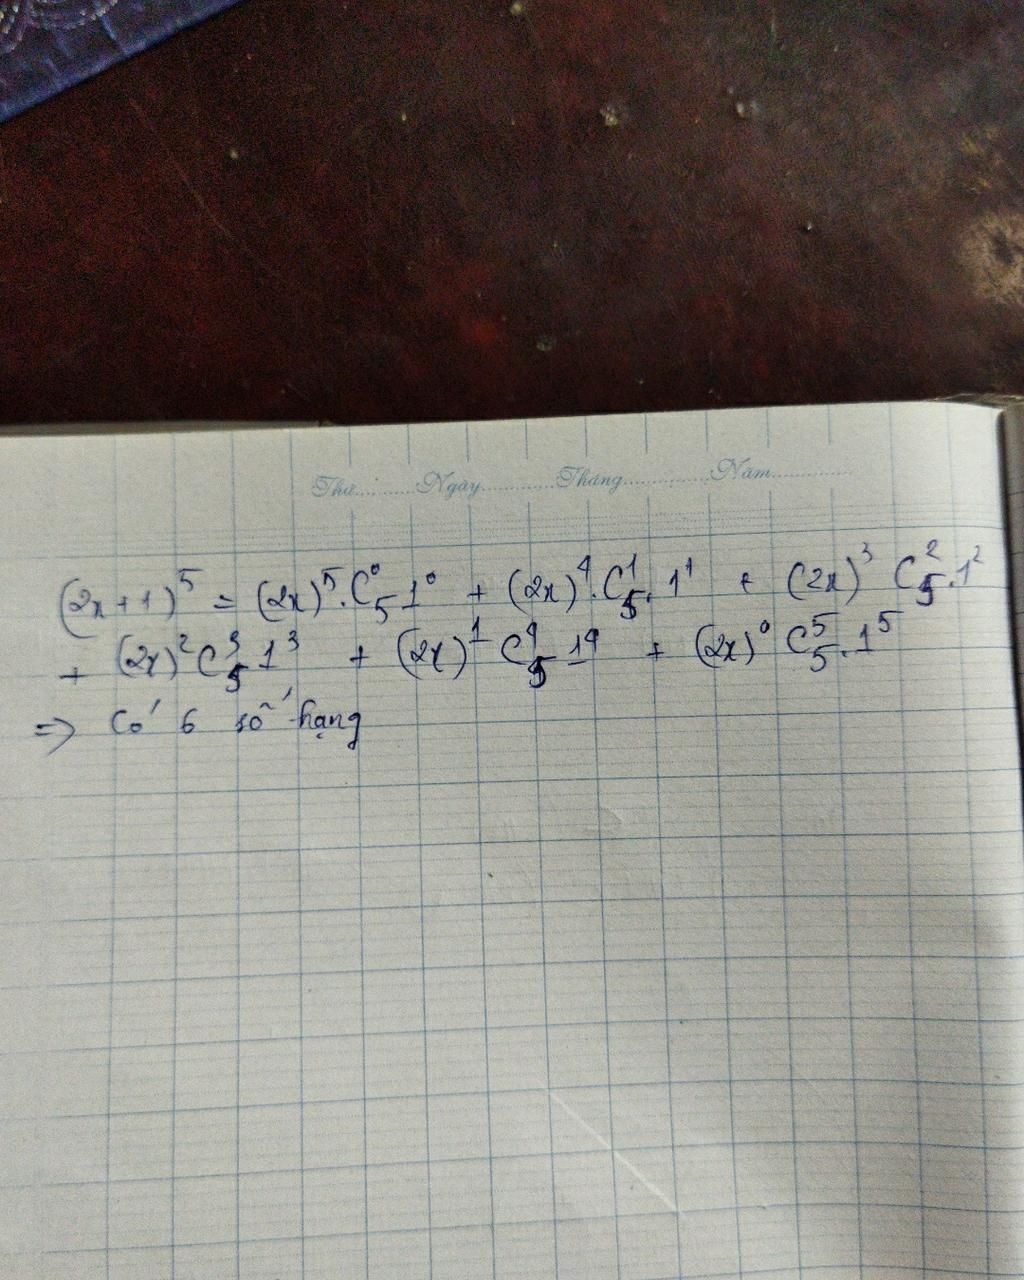 Thứ..........Ngày..............Tháng................Năm...............
(2x+1)⁵ = (2x)⁵.C₅⁰ 1⁰ + (2x)⁴.C₅¹. 1¹ + (2x)³ C₅².1²
+ (2x)² C₅³ 1³ + (2x)¹ C₅⁴ 1⁴ + (2x)⁰ C₅⁵.1⁵
=> Có 6 số hạng